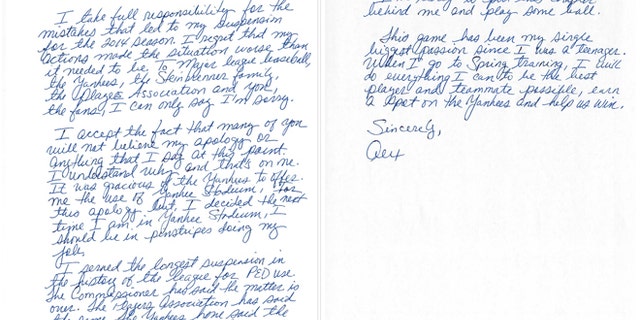 I take full responsibility for the
mistakes that led to my suspension
for the 2014 season. I regret that my
actions made the situation worse than
it needed to be. To Major League Baseball,
the Yankees, the Steinbrenner family,
the Players Association and you,
the fans, I can only say I'm sorry.
I accept the fact that many of you
will not believe my apology or
anything that I say at this point.
I understand why and that's on me.
It was gracious of the Yankees to offer
me the use of Yankee Stadium, for
this apology but, I decided the next
time I am in Yankee Stadium, I
should be in pinstripes doing my
job.
I served the longest suspension in
the history of the league for PED use.
The Commissioner has said the matter is
over. The Players Association has said
the same. The Yankees have said the
behind me and play some ball.
This game has been my single
biggest passion since I was a teenager.
When I go to Spring Training, I will
do everything I can to be the best
player and teammate possible, earn
a spot on the Yankees and help us win.
Sincerely,
Alex